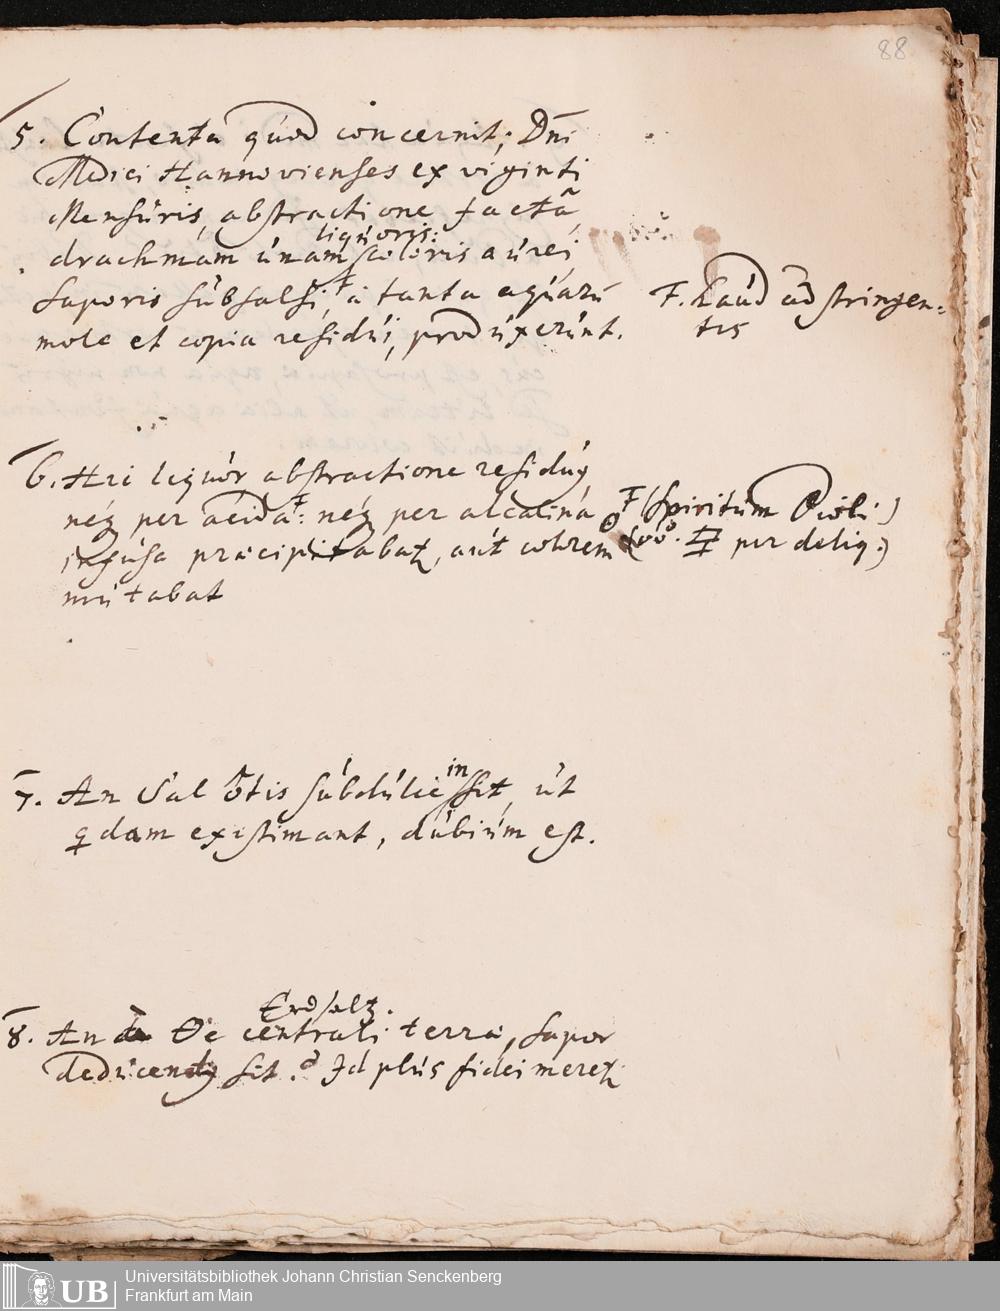 88
5. Contenta quod concernit; Dn̄i
Medici Hannovienses ex viginti
Mensuris, abstractione factâ
liquoris:
drachmam unam coloris aurei
saporis subsalsi, F â tanta aquarū
mole et copia residui, produxerunt.
F. haud adstringen-
tis
6. Hic liquor abstractione residuq
neq per acida F: neq per alcalina
infusa præcipitabatz, aut colorem
mutabat
F (Spiritum Violi)
per deliq.)
7. An Sal ōtis subdulce insit, ut
qdam existimant, dubium est.
Erdsaltz.
8. An de centrali terræ, sapor
deducendq sit.? Id plus fidei meretz
UB
Universitätsbibliothek Johann Christian Senckenberg
Frankfurt am Main